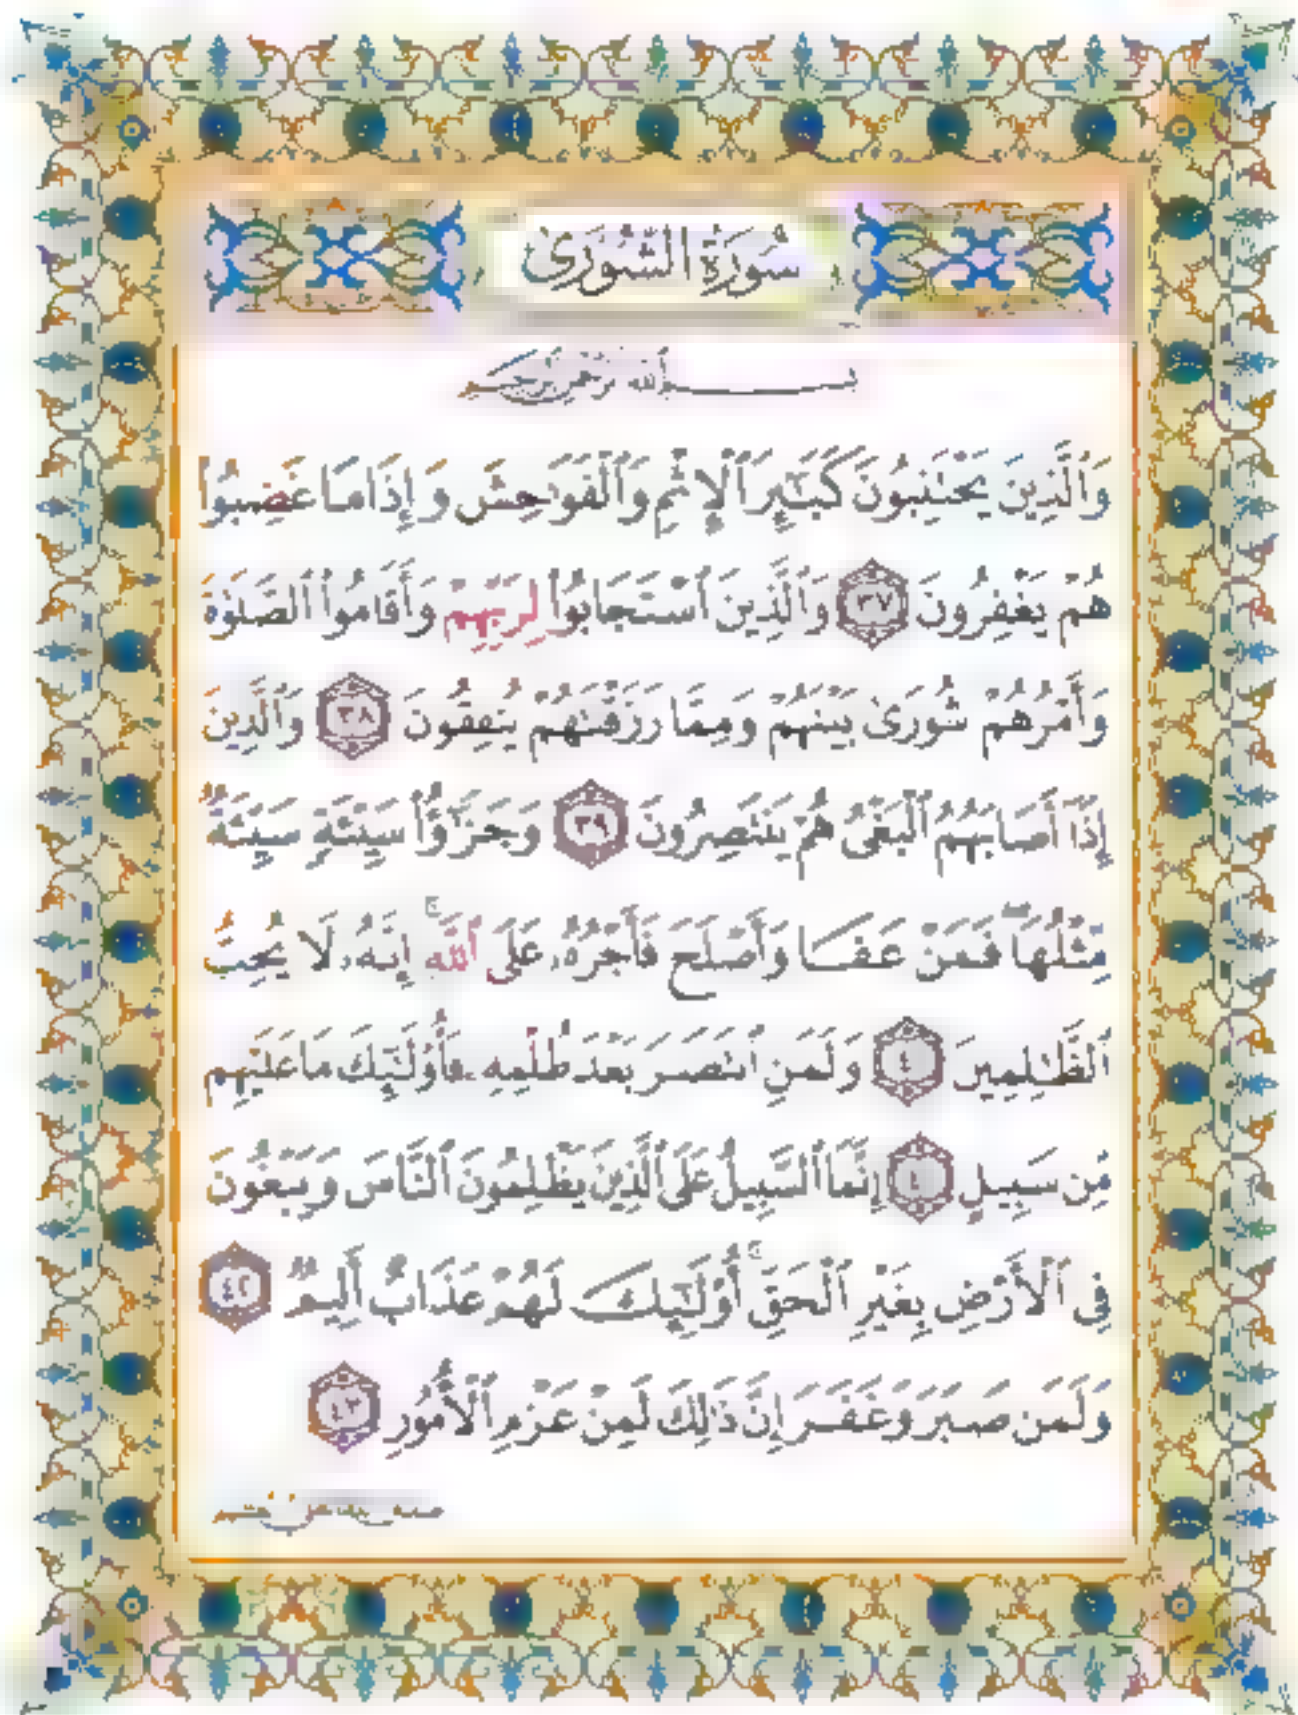 سُورَةُ الشُّورَىٰ
بِسْمِ ٱللَّهِ ٱلرَّحْمَٰنِ ٱلرَّحِيمِ
وَٱلَّذِينَ يَجْتَنِبُونَ كَبَٰٓئِرَ ٱلْإِثْمِ وَٱلْفَوَٰحِشَ وَإِذَا مَا غَضِبُوا۟
هُمْ يَغْفِرُونَ ٣٧ وَٱلَّذِينَ ٱسْتَجَابُوا۟ لِرَبِّهِمْ وَأَقَامُوا۟ ٱلصَّلَوٰةَ
وَأَمْرُهُمْ شُورَىٰ بَيْنَهُمْ وَمِمَّا رَزَقْنَٰهُمْ يُنفِقُونَ ٣٨ وَٱلَّذِينَ
إِذَآ أَصَابَهُمُ ٱلْبَغْىُ هُمْ يَنتَصِرُونَ ٣٩ وَجَزَٰٓؤُا۟ سَيِّئَةٍ سَيِّئَةٌ
مِّثْلُهَا ۖ فَمَنْ عَفَا وَأَصْلَحَ فَأَجْرُهُۥ عَلَى ٱللَّهِ ۚ إِنَّهُۥ لَا يُحِبُّ
ٱلظَّٰلِمِينَ ٤٠ وَلَمَنِ ٱنتَصَرَ بَعْدَ ظُلْمِهِۦ فَأُو۟لَٰٓئِكَ مَا عَلَيْهِم
مِّن سَبِيلٍ ٤١ إِنَّمَا ٱلسَّبِيلُ عَلَى ٱلَّذِينَ يَظْلِمُونَ ٱلنَّاسَ وَيَبْغُونَ
فِى ٱلْأَرْضِ بِغَيْرِ ٱلْحَقِّ ۚ أُو۟لَٰٓئِكَ لَهُمْ عَذَابٌ أَلِيمٌ ٤٢
وَلَمَن صَبَرَ وَغَفَرَ إِنَّ ذَٰلِكَ لَمِنْ عَزْمِ ٱلْأُمُورِ ٤٣